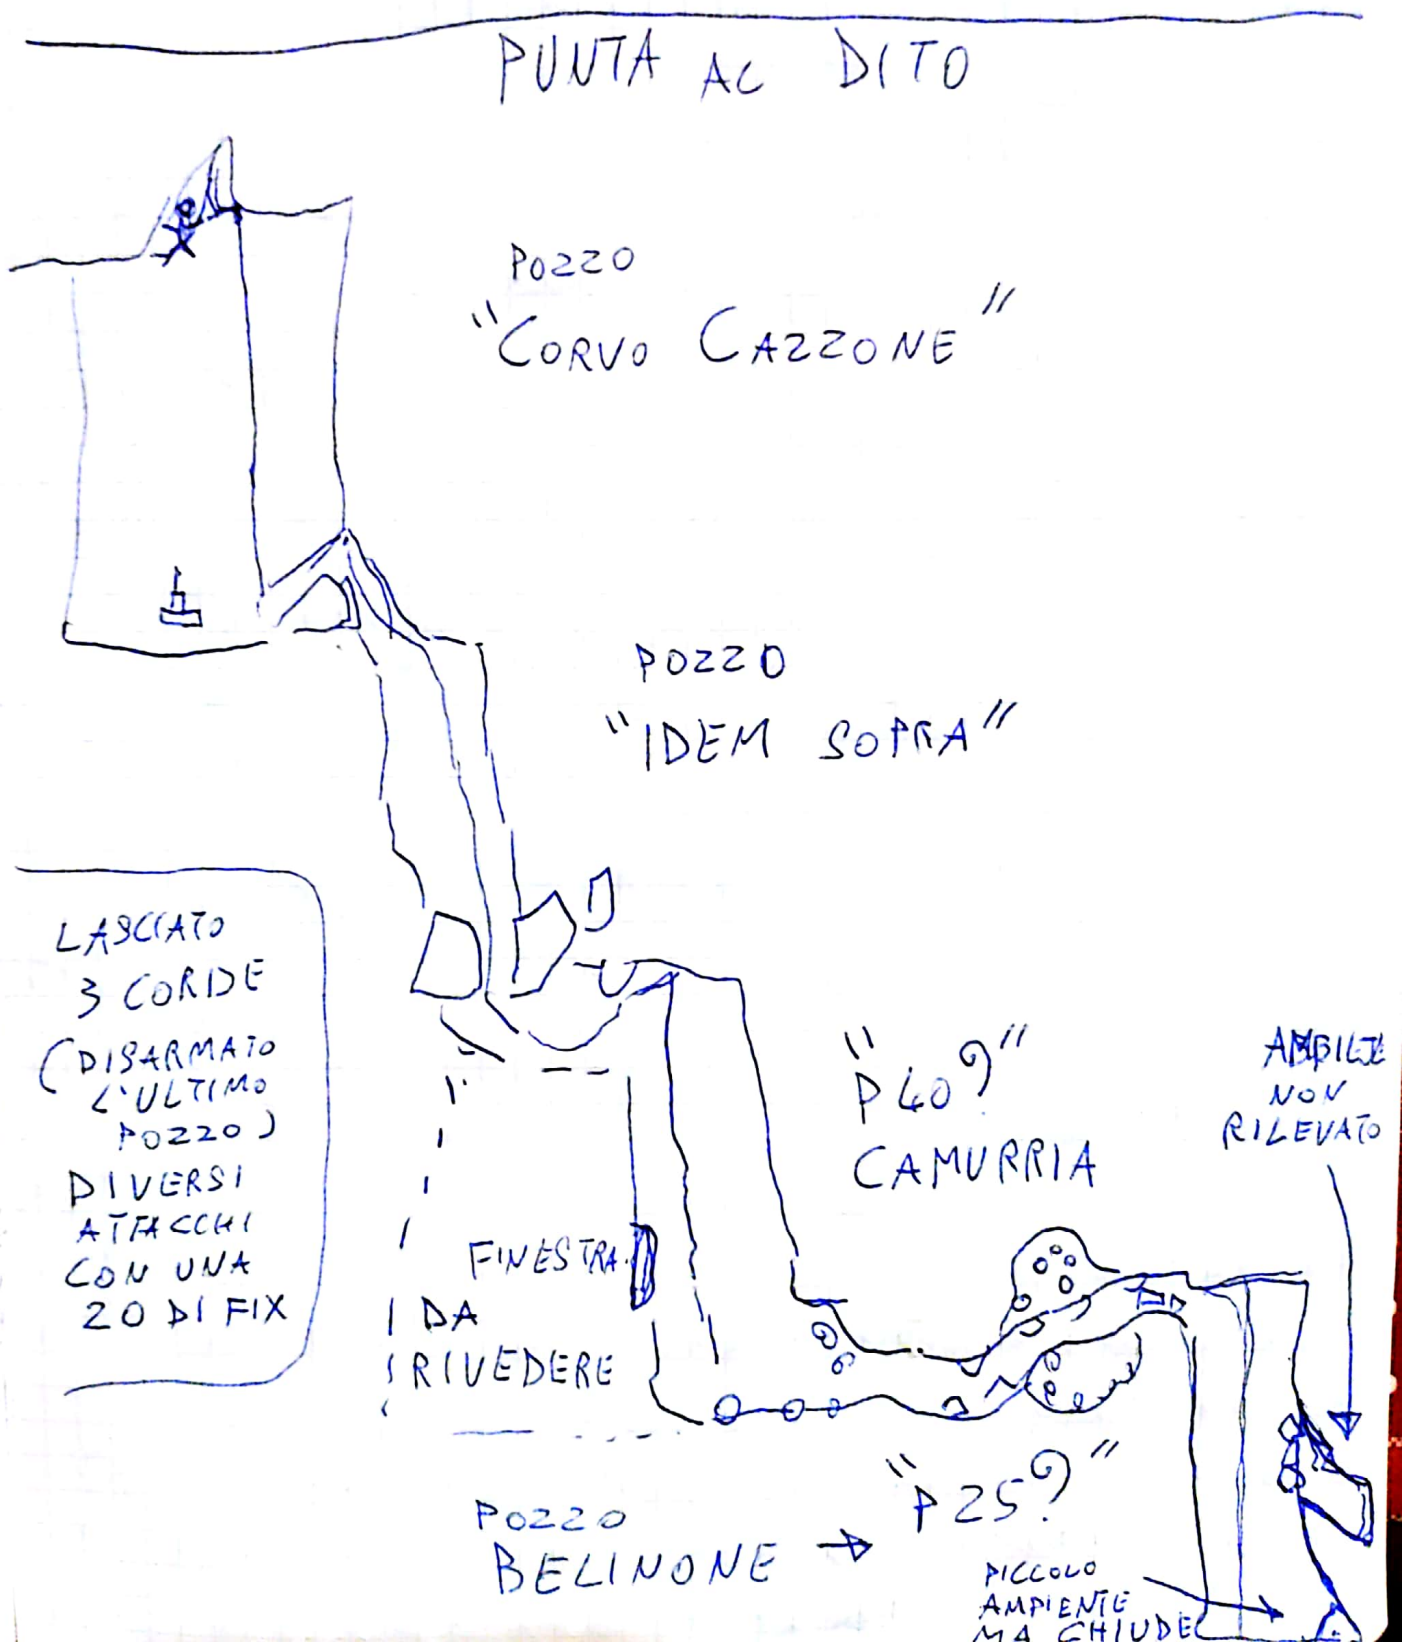 PUNTA AL DITO
POZZO
"CORVO CAZZONE"
POZZO
"IDEM SOPRA"
LASCIATO
3 CORDE
(DISARMATO
L'ULTIMO
POZZO)
DIVERSI
ATTACCHI
CON UNA
20 DI FIX
"P40?"
CAMURRIA
NON
RILEVATO
FINESTRA
DA
RIVEDERE
"P25?"
POZZO
BELINONE →
PICCOLO
AMPIENTE
MA CHIUDE